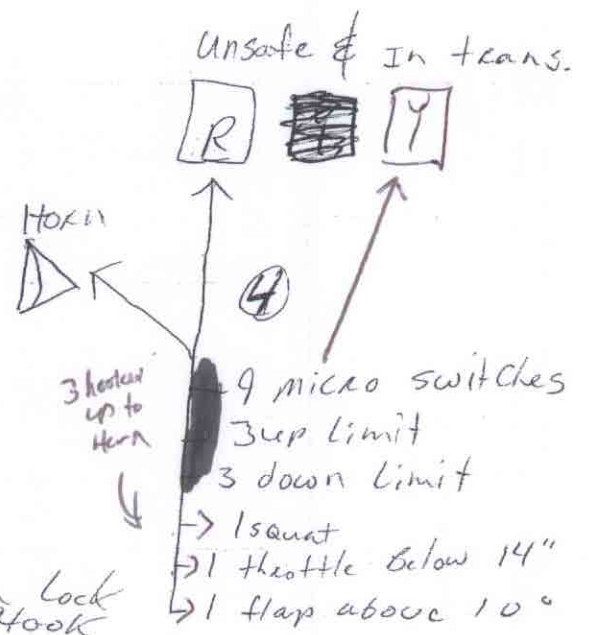 Unsafe & In trans.
R Y
Horn
4
3 hooked up to Horn
9 micro switches
3 up Limit
3 down Limit
1 squat
1 throttle Below 14"
1 flap above 10°
Lock
Hook